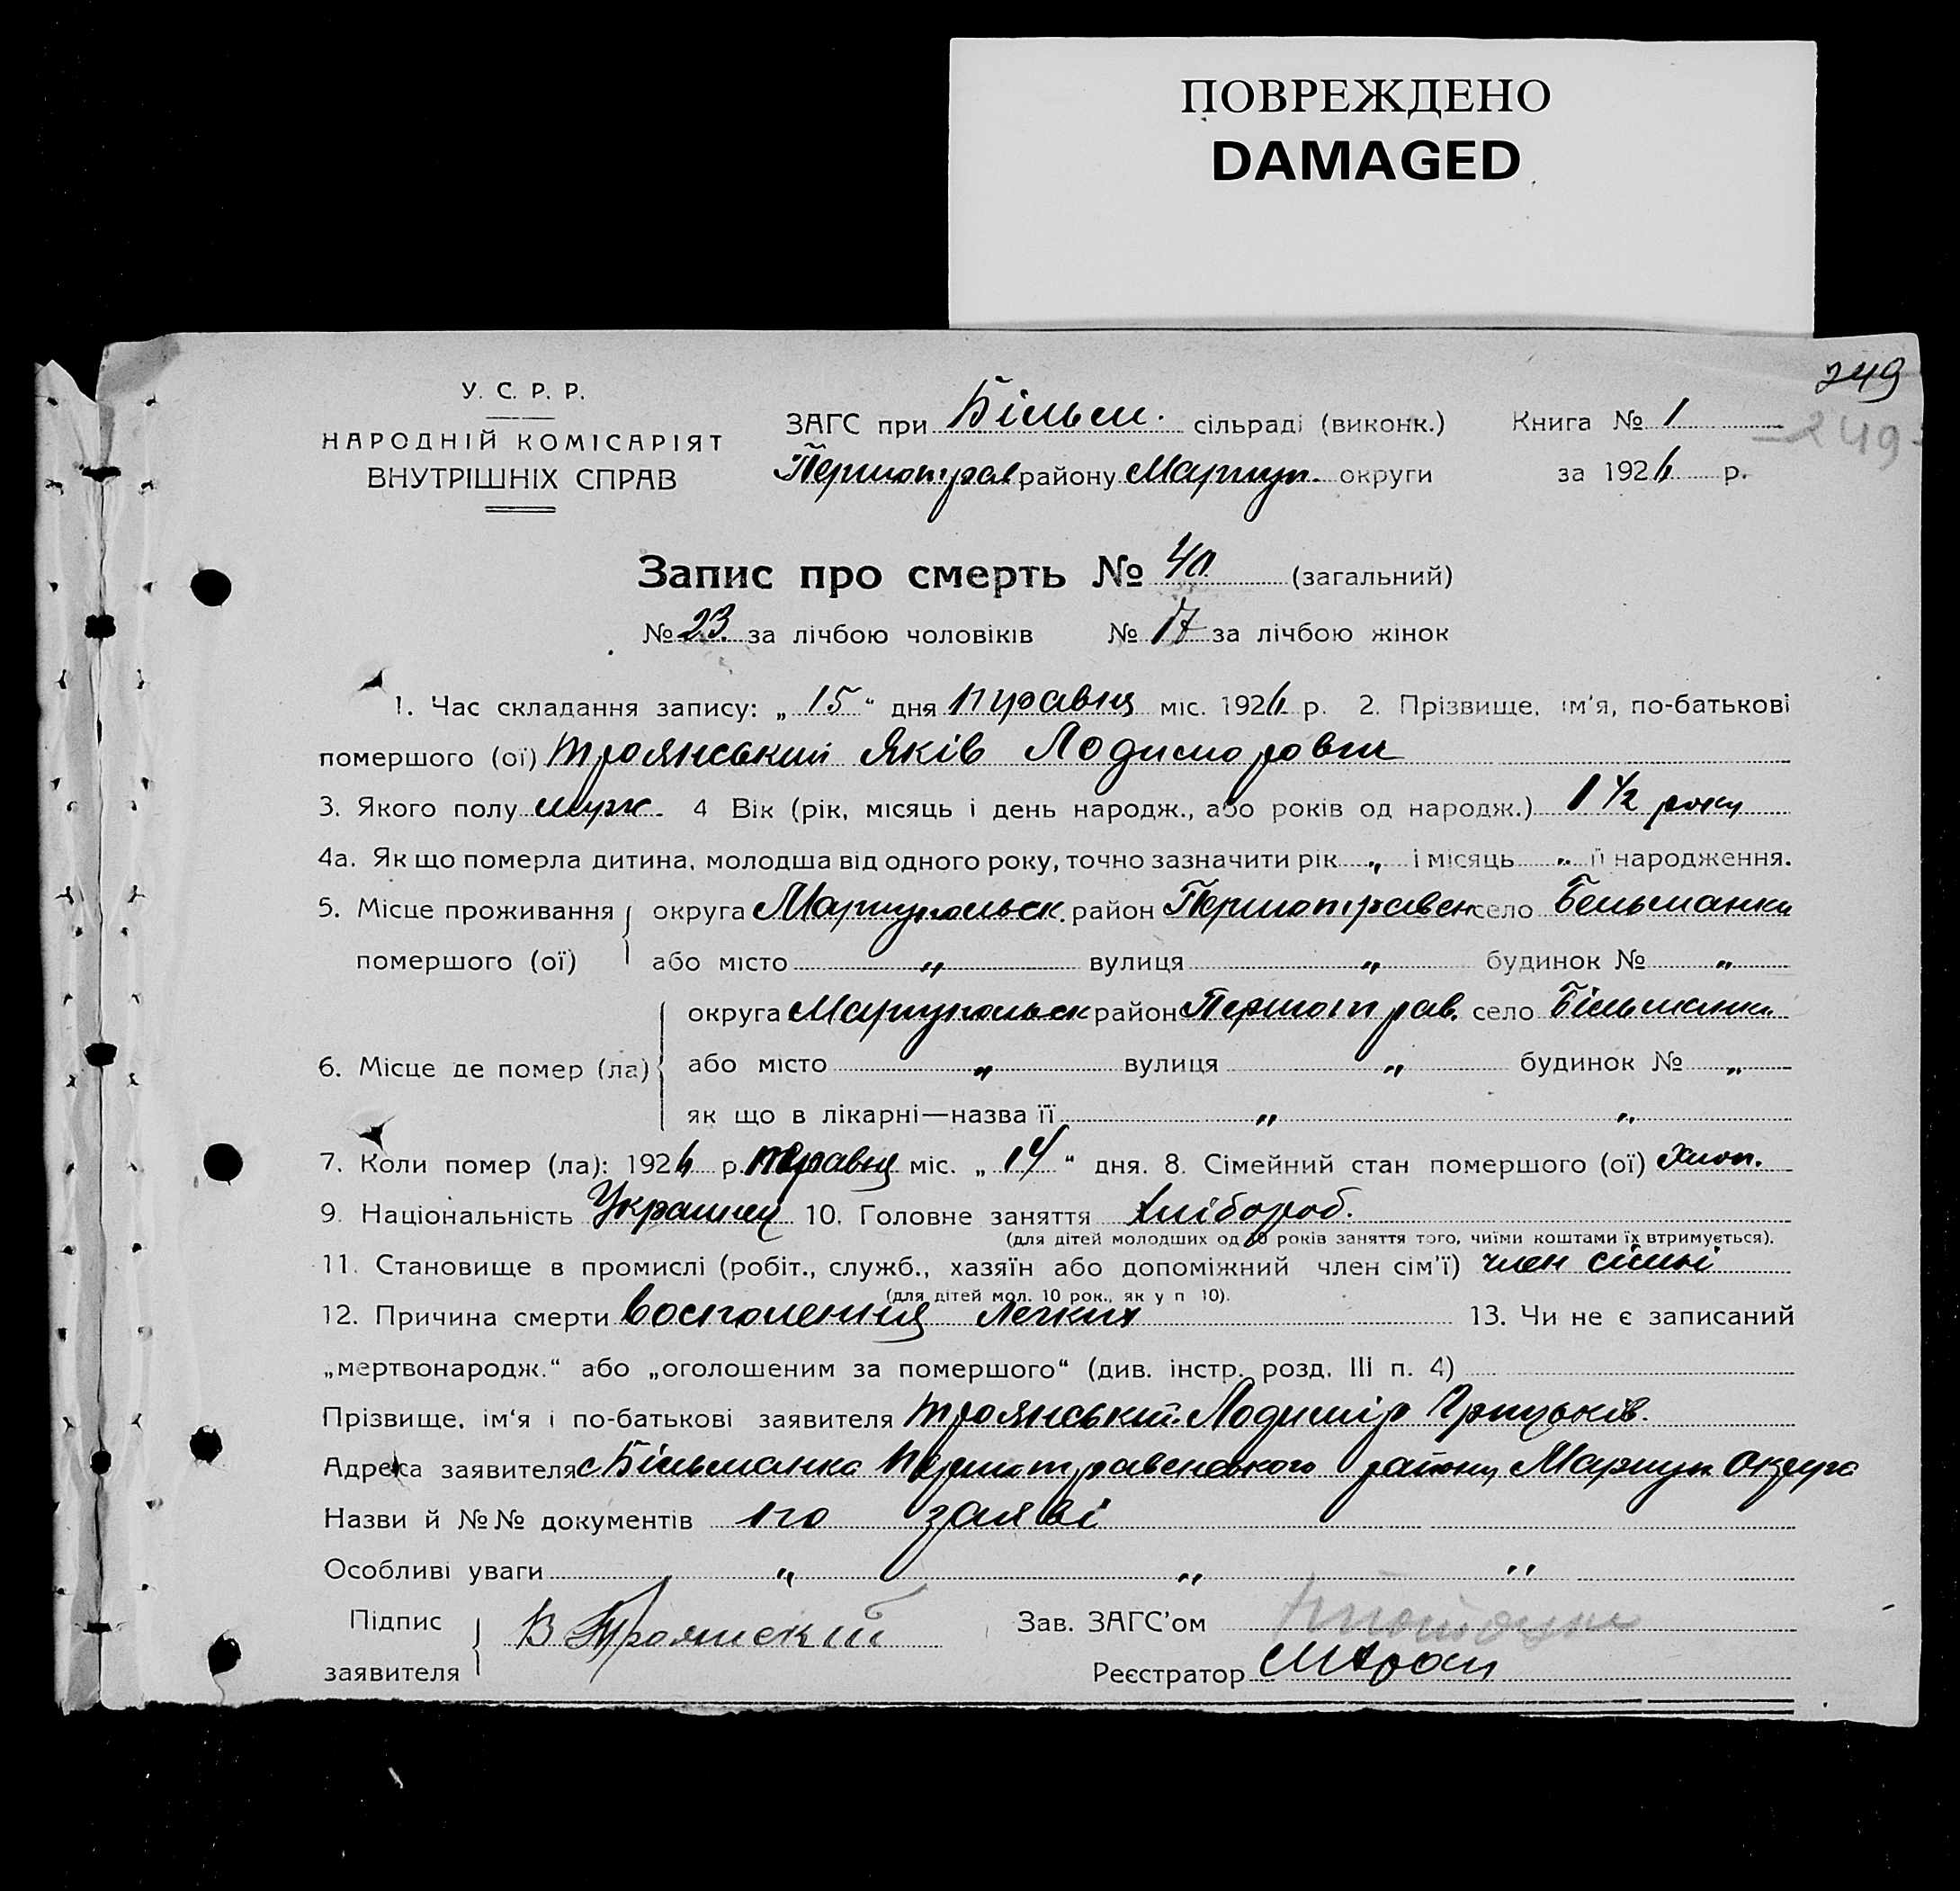 ПОВРЕЖДЕНО
DAMAGED
249
249
У. С. Р. Р.
НАРОДНІЙ КОМІСАРІЯТ
ВНУТРІШНІХ СПРАВ
ЗАГС при Більм. сільраді (виконк.) Книга № 1
Першотрав району Маріуп. округи за 1926 р.
Запис про смерть № 40 (загальний)
№ 23 за лічбою чоловіків № 17 за лічбою жінок
1. Час складання запису: „ 15 “ дня травня міс. 1926 р. 2. Прізвище, ім'я, по-батькові
помершого (ої) Троянський Яків Лодиморович
3. Якого полу муж. 4 Вік (рік, місяць і день народж., або років од народж.) 1 1/2 року
4а. Як що померла дитина, молодша від одного року, точно зазначити рік „ і місяць „ її народження.
5. Місце проживання округа Маріупольск. район Першотравен село Бельманка
помершого (ої) або місто „ вулиця „ будинок № „
округа Маріупольск район Першотрав. село Більманка
6. Місце де помер (ла) або місто „ вулиця „ будинок № „
як що в лікарні—назва її „ „
7. Коли помер (ла): 1926 р. травня міс. „ 14 “ дня. 8. Сімейний стан помершого (ої) хлоп.
9. Національність Українец 10. Головне заняття хлібороб.
(для дітей молодших од 10 років заняття того, чиїми коштами їх втримується).
11. Становище в промислі (робіт., служб., хазяїн або допоміжний член сім'ї) член сімьі
(для дітей мол. 10 рок., як у п 10).
12. Причина смерти Восполения легких 13. Чи не є записаний
„мертвонародж.“ або „оголошеним за помершого“ (див. інстр. розд. III п. 4)
Прізвище, ім‘я і по-батькові заявителя Троянський Лодимір Грицьків.
Адреса заявителя с Більманка Першотравенського району Маріуп округа
Назви й №№ документів по заяві
Особливі уваги „ „ „
Підпис заявителя В Троянский
Зав. ЗАГС'ом
Реєстратор